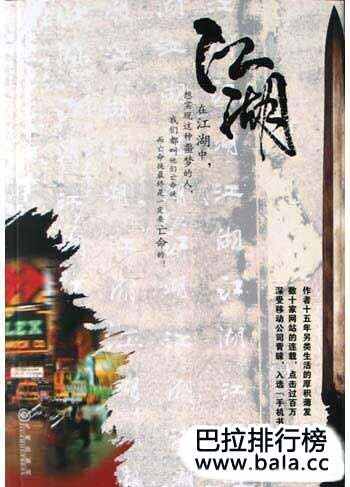 江湖
在江湖中，
想实现这种噩梦的人，
我们都叫他们亡命徒，
而亡命徒最终是一定要亡命的！
作者十五年另类生活的厚积薄发
数十家网站的连载，点击过百万
深受移动公司青睐，入选「手机书
LEX
巴拉排行榜
www.bala.cc